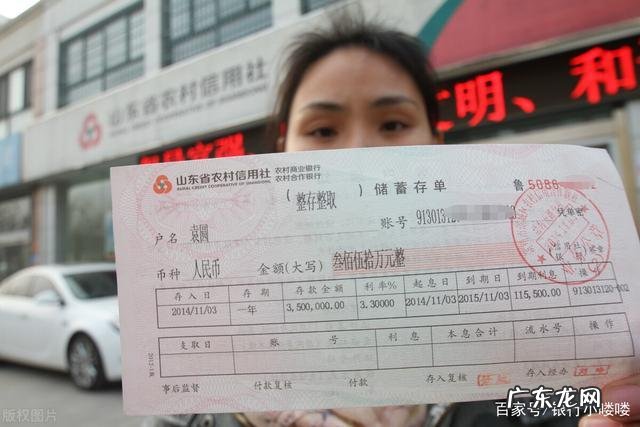 山东省农村信用社
RURAL CREDIT COOPERATIVE OF SHANDONG
文明、和
山东省农村信用社 农村商业银行
RURAL CREDIT COOPERATIVE OF SHANDONG 农村合作银行
(整存整取) 储蓄存单 鲁 5086
账号 9130131
户名 袁圆
币种 人民币 金额(大写) 叁佰伍拾万元整
存入日 存期 存款金额 利率% 起息日 到期日 到期利息 操作
2014/11/03 一年 3,500,000.00 3.30000 2014/11/03 2015/11/03 115,500.00 913013120-002
支取日 账号 利息 本息合计 流水号 操作
事后监督 付款复核 付款 存入复核 存入经办
版权图片
百家号/银行小喽喽
广东龙网